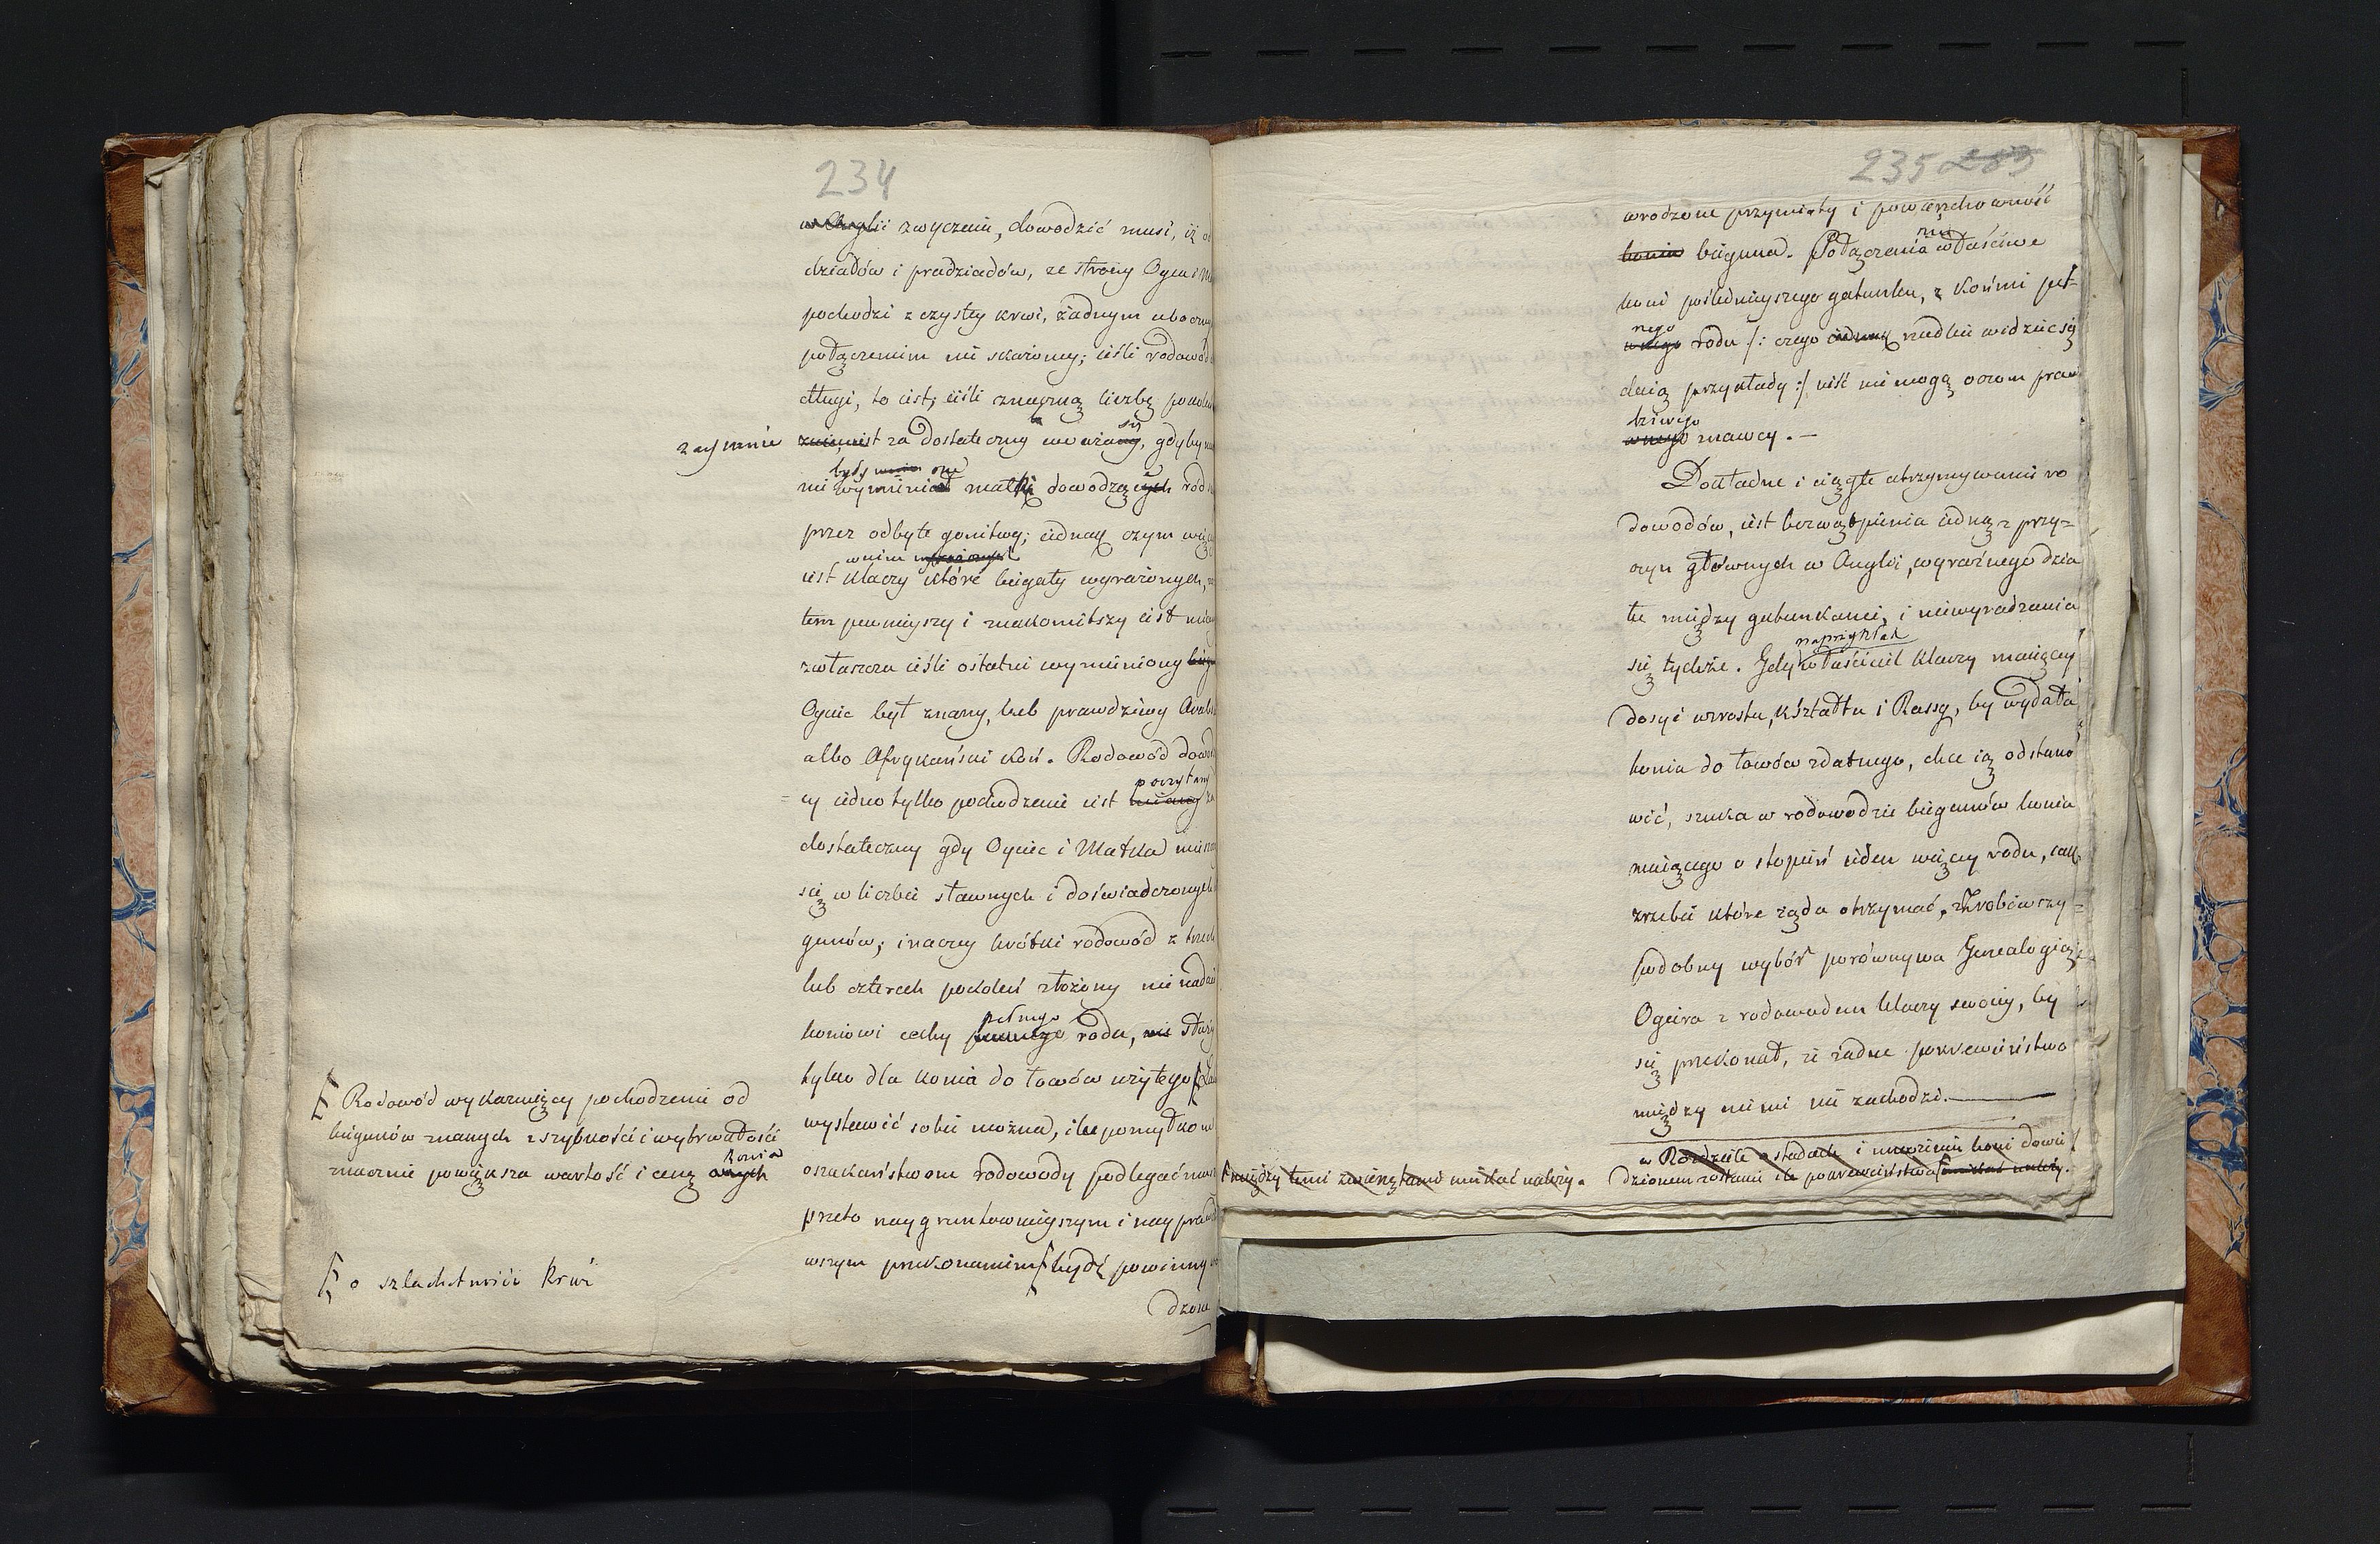 234
w Anglii zwyczaiu, dowodzić musi, iż
dziadów i pradziadów, ze strony Oyca i
pochodzi z czystey krwi, żadnym uboczny
połączeniem nie skażoney; ieśli rodowód
długi, to iest, ieśli znaczną liczbę pokoleń
zaymuie iest za dostateczny uważany się, gdyby
nie były one wymienione matki dowodzących ród
przez odbyte gonitwy; iednak czym więcey
w nim
iest klaczy które biegały wyrażonych,
tem pewnieyszy i znakomitszy iest
zwłaszcza ieśli ostatni wymieniony
Oyciec był znany, lub prawdziwy Arab
albo Afrykański koń. Rodowód dowodzą
poczytany
cy iedno tylko pochodzenie iest miany za
dostateczny gdy Oyciec i Matka mieszczą
się w liczbie sławnych i doświadczonych
gunów; inaczey krótki rodowód z trzech
lub czterech pokoleń złożony nie nadaie
pełnego
koniowi cechy rodu, nie służy
tylko dla konia do łowów użytego
wystawić sobie można, ile pomyłkom
oszukaństwom rodowody podlegać
przeto naygruntownieyszym i nayprawd
wszym przekonaniem bydź powinny
dzone
zaymuie
Rodowód wykazuiący pochodzenie od
biegunów znanych z szybkości i wytrwałości
konia
znacznie powiększa wartość i cenę onych
o szlachetności krwi
235 283
wrodzone przymioty i powierzchowność
konia bieguna. Połączenia niewłaściwe
koni poślednieyszego gatunku, z końmi peł-
nego
rodu /: czego iednak rzadkie widzieć się
daią przykłady :/ uiść nie mogą oczom praw
dziwego
znawcy. —
Dokładne i ciągłe utrzymywanie ro
dowodów, iest bezwątpienia iedną z przy=
czyn głównych w Anglii, wyraźnego dzia
łu między gatunkami, i niewyradzania
naprzykład
się tychże. Gdy właściciel klaczy maiącey
dosyć wzrostu, kształtu i Rassy, by wydała
konia do łowów zdatnego, chce ią odstano
wić, szuka w rodowodzie biegunów konia
maiącego o stopień ieden więcey rodu, iak
zrzebie które żąda otrzymać. Zrobiwszy=
podobny wybór porównywa Genealogią
Ogiera z rodowodem klaczy swoiey, by
się przekonał, że żadne pokrewieństwo
między niemi nie zachodzi. —
w Rozdziele o stadach i mnożeniu koni dowie
dzionem zostanie ile pokrewieństwa unikać należy.
między temi zwierzętami unikać należy.